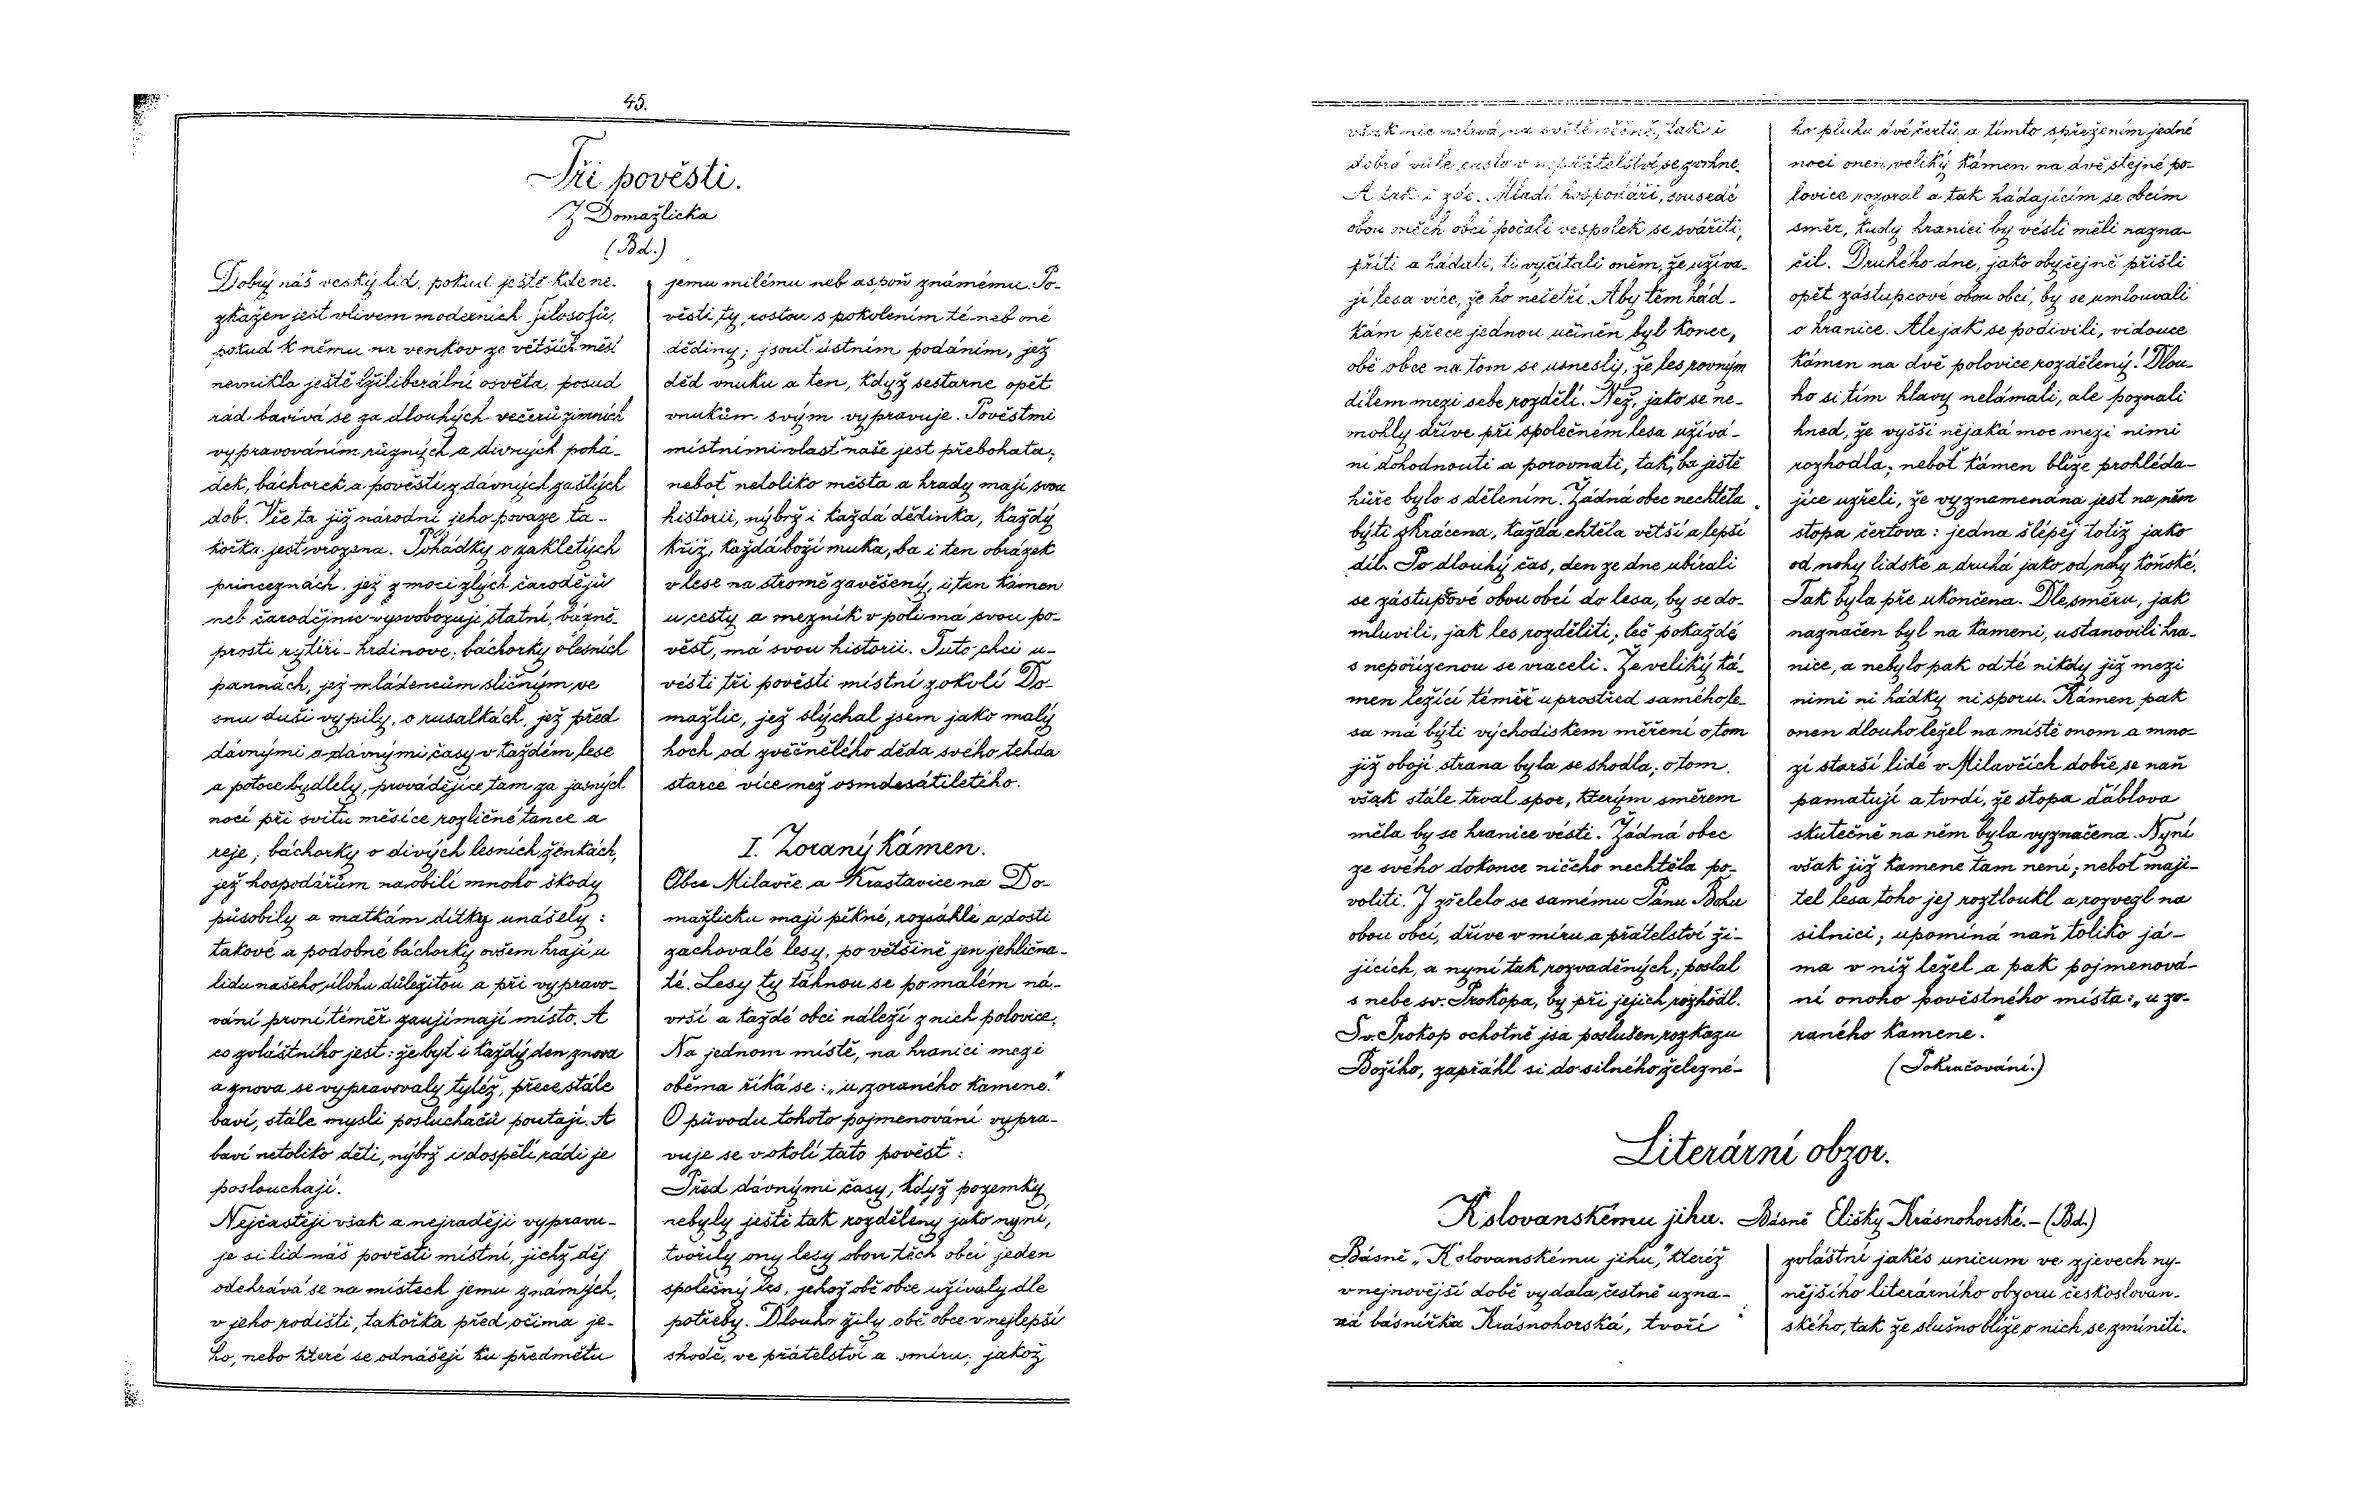 45.
Tři pověsti.
Z Domažlicka
(Bd.)
Dobrý náš veský lid, pokud ještě kde ne-
zkažen jest vlivem moderních filosofů,
pokud k němu na venkov ze větších měst
nevnikla ještě lžiliberální osvěta, posud
rád bavívá se za dlouhých večerů zimních
vypravováním různých a divných pohá-
dek, báchorek a pověstí z dávných zašlých
dob. Věc ta již národní jeho povaze ta-
kořka jest vrozena. Pohádky o zakletých
princeznách, jež z moci zlých čarodějů
neb čarodějnic vysvobozují statní, bázně-
prostí rytíři-hrdinové; báchorky o lesních
pannách, jež mládencům sličným ve
snu duši vypily, o rusalkách, jež před
dávnými a dávnými časy v každém lese
a potoce bydlely, provádějíce tam za jasných
nocí při svitu měsíce rozličné tance a
reje; báchorky o divých lesních ženkách,
jež hospodářům na obilí mnoho škody
působily a matkám dítky unášely:
takové a podobné báchorky ovšem hrají u
lidu našeho úlohu důležitou a při vypravo-
vání první téměř zaujímají místo. A
co zvláštního jest: že byť i každý den znova
a znova se vypravovaly tytéž, přece stále
baví, stále mysli posluchačů poutají. A
baví netoliko děti, nýbrž i dospělí rádi je
poslouchají.
Nejčastěji však a nejraději vypravu-
je si lid náš pověsti místní, jichž děj
odehrává se na místech jemu známých,
v jeho rodišti, takořka před očima je-
ho, nebo které se odnášejí ku předmětu
jemu milému neb aspoň známému. Po-
věsti ty rostou s pokolením té neb oné
dědiny; jsouť ústním podáním, jež
děd vnuku a ten, když sestarne opět
vnukům svým vypravuje. Pověstmi
místními vlast naše jest přebohata;
neboť netoliko města a hrady mají svou
historii, nýbrž i každá dědinka, každý
kříž, každá boží muka, ba i ten obrázek
v lese na stromě zavěšený, i ten kámen
u cesty a mezník v poli má svou po-
věst, má svou historii. Tuto chci u-
vésti tři pověsti místní z okolí Do-
mažlic, jež slýchal jsem jako malý
hoch od zvěčnělého děda svého tehda
starce více než osmdesátiletého.
I. Zoraný kámen.
Obce Milavče a Chrastavice na Do-
mažlicku mají pěkné, rozsáhlé a dosti
zachovalé lesy, po většině jen jehlična-
té. Lesy ty táhnou se po malém ná-
vrší a každé obci náleží z nich polovice.
Na jednom místě, na hranici mezi
oběma říká se: „u zoraného kamene."
O původu tohoto pojmenování vypra-
vuje se v okolí tato pověst:
Před dávnými časy, když pozemky
nebyly ještě tak rozděleny jako nyní,
tvořily ony lesy obou těch obcí jeden
společný les, jehož obě obce užívaly dle
potřeby. Dlouho žily obě obce v nejlepší
shodě, ve přátelství a smíru; jakož
však nic netrvá na světě věčně, tak i
dobrá vůle často v nepřátelství se zvrhne.
A tak i zde. Mladí hospodáři, sousedé
obou oněch obcí počali vespolek se svářiti,
příti a hádati, ti vyčítali oněm, že užíva-
jí lesa více, že ho nešetří. Aby těm hád-
kám přece jednou učiněn byl konec,
obě obce na tom se usnesly, že les rovným
dílem mezi sebe rozdělí. Než, jako se ne-
mohly dříve při společném lesa užívá-
ní dohodnouti a porovnati, tak, ba ještě
hůře bylo s dělením. Žádná obec nechtěla
býti zkrácena, každá chtěla větší a lepší
díl. Po dlouhý čas, den ze dne ubírali
se zástupcové obou obcí do lesa, by se do-
mluvili, jak les rozděliti; leč pokaždé
s nepořízenou se vraceli. Že veliký ká-
men ležící téměř uprostřed samého le-
sa má býti východiskem měření o tom
již obojí strana byla se shodla; o tom
však stále trval spor, kterým směrem
měla by se hranice vésti. Žádná obec
ze svého dokonce ničeho nechtěla po-
voliti. I zželelo se samému Pánu Bohu
obou obcí, dříve v míru a přátelství ži-
jících, a nyní tak rozvaděných; poslal
s nebe sv. Prokopa, by při jejich rozhodl.
Sv. Prokop ochotně jsa poslušen rozkazu
Božího, zapřáhl si do silného železné-
ho pluhu dvé čertů a tímto spřežením jedné
noci onen veliký kámen na dvě stejné po-
lovice rozoral a tak hádajícím se obcím
směr, kudy hranici by vésti měli nazna-
čil. Druhého dne, jako obyčejně přišli
opět zástupcové obou obcí, by se umlouvali
o hranice. Ale jak se podivili, vidouce
kámen na dvě polovice rozdělený! Dlou-
ho si tím hlavy nelámali, ale poznali
hned, že vyšší nějaká moc mezi nimi
rozhodla; neboť kámen blíže prohléda-
jíce uzřeli, že vyznamenána jest na něm
stopa čertova: jedna šlépěj totiž jako
od nohy lidské a druhá jako od nohy koňské.
Tak byla pře ukončena. Dle směru, jak
naznačen byl na kameni, ustanovili hra-
nice, a nebylo pak od té nikdy již mezi
nimi ni hádky ni sporu. Kámen pak
onen dlouho ležel na místě onom a mno-
zí starší lidé v Milavčích dobře se naň
pamatují a tvrdí, že stopa ďáblova
skutečně na něm byla vyznačena. Nyní
však již kamene tam není; neboť maji-
tel lesa toho jej roztloukl a rozvezl na
silnici; upomíná naň toliko já-
ma v níž ležel a pak pojmenová-
ní onoho pověstného místa: „u zo-
raného kamene."
(Pokračování.)
Literární obzor.
K slovanskému jihu. Básně Elišky Krásnohorské. - (Bd.)
Básně „K slovanskému jihu", kteréž
v nejnovější době vydala čestně uzna-
ná básnířka Krásnohorská, tvoří
zvláštní jakés unicum ve zjevech ny-
nějšího literárního obzoru českoslovan-
ského, tak že slušno blíže o nich se zmíniti.